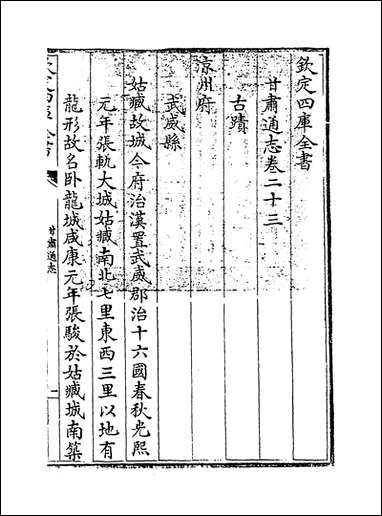 欽定四庫全書
甘肅通志卷二十三
古蹟
涼州府
武威縣
姑臧故城今府治漢置武威郡治十六國春秋光熙
元年張軌大城姑臧南北七里東西三里以地有
龍形故名卧龍城咸康元年張駿於姑臧城南築
甘肅通志